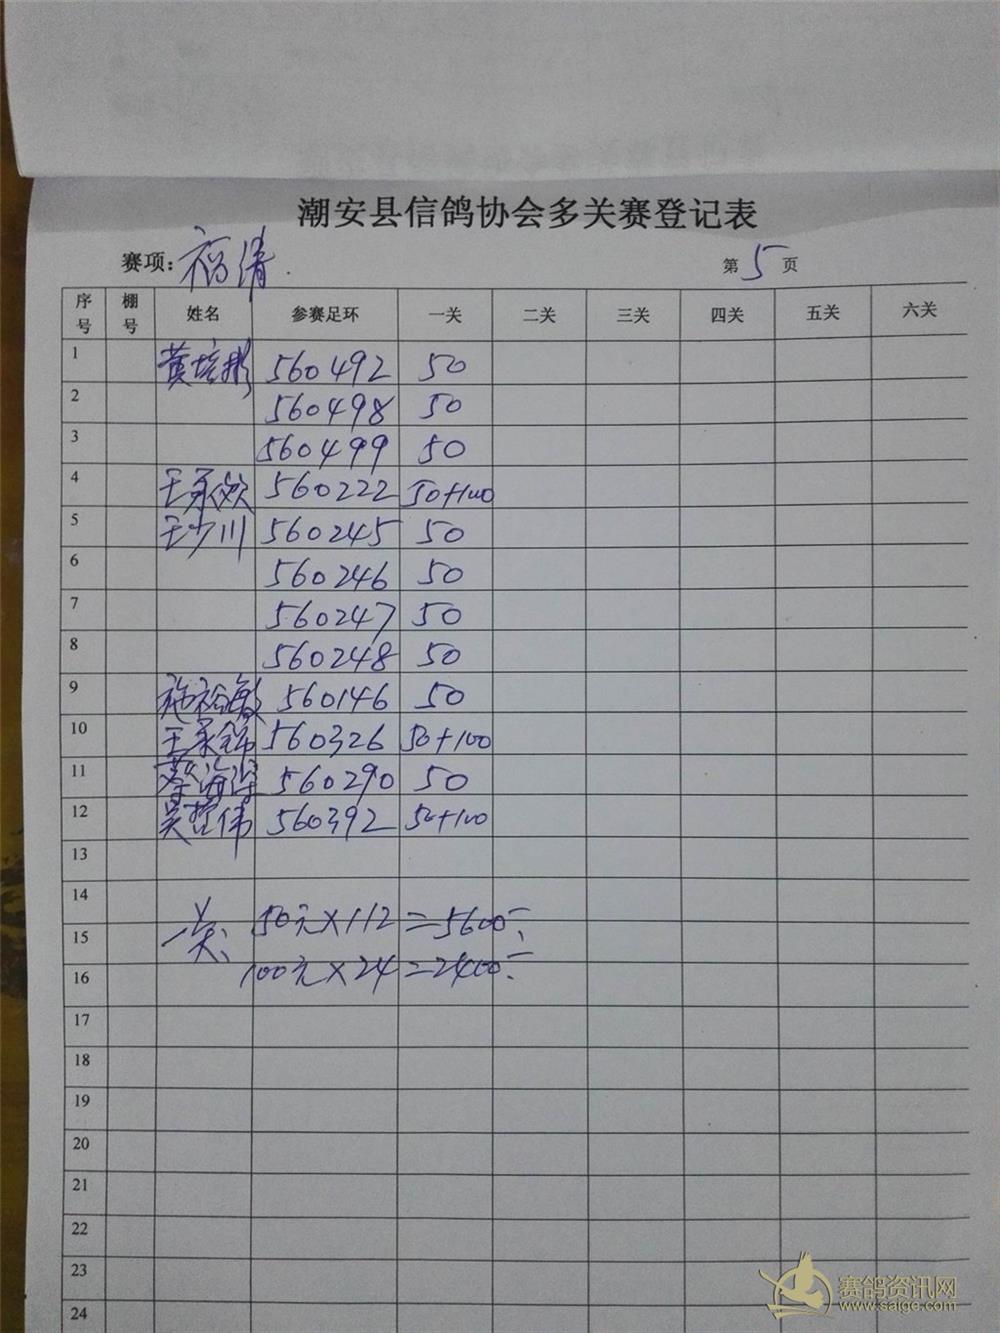 潮安县信鸽协会多关赛登记表
赛项：福清.
第5页
序号 棚号 姓名 参赛足环 一关 二关 三关 四关 五关 六关
1 黄培彬 560492 50
2 560498 50
3 560499 50
4 王承 560222 50+100
5 王少川 560245 50
6 560246 50
7 560247 50
8 560248 50
9 施裕敏 560146 50
10 王承锦 560326 50+100
11 蔡海 560290 50
12 吴哲伟 560392 50+100
13
14
15 一关: 50元×112=5600元
16 100元×24=2400元
17
18
19
20
21
22
23
24
赛鸽资讯网
www.saige.com